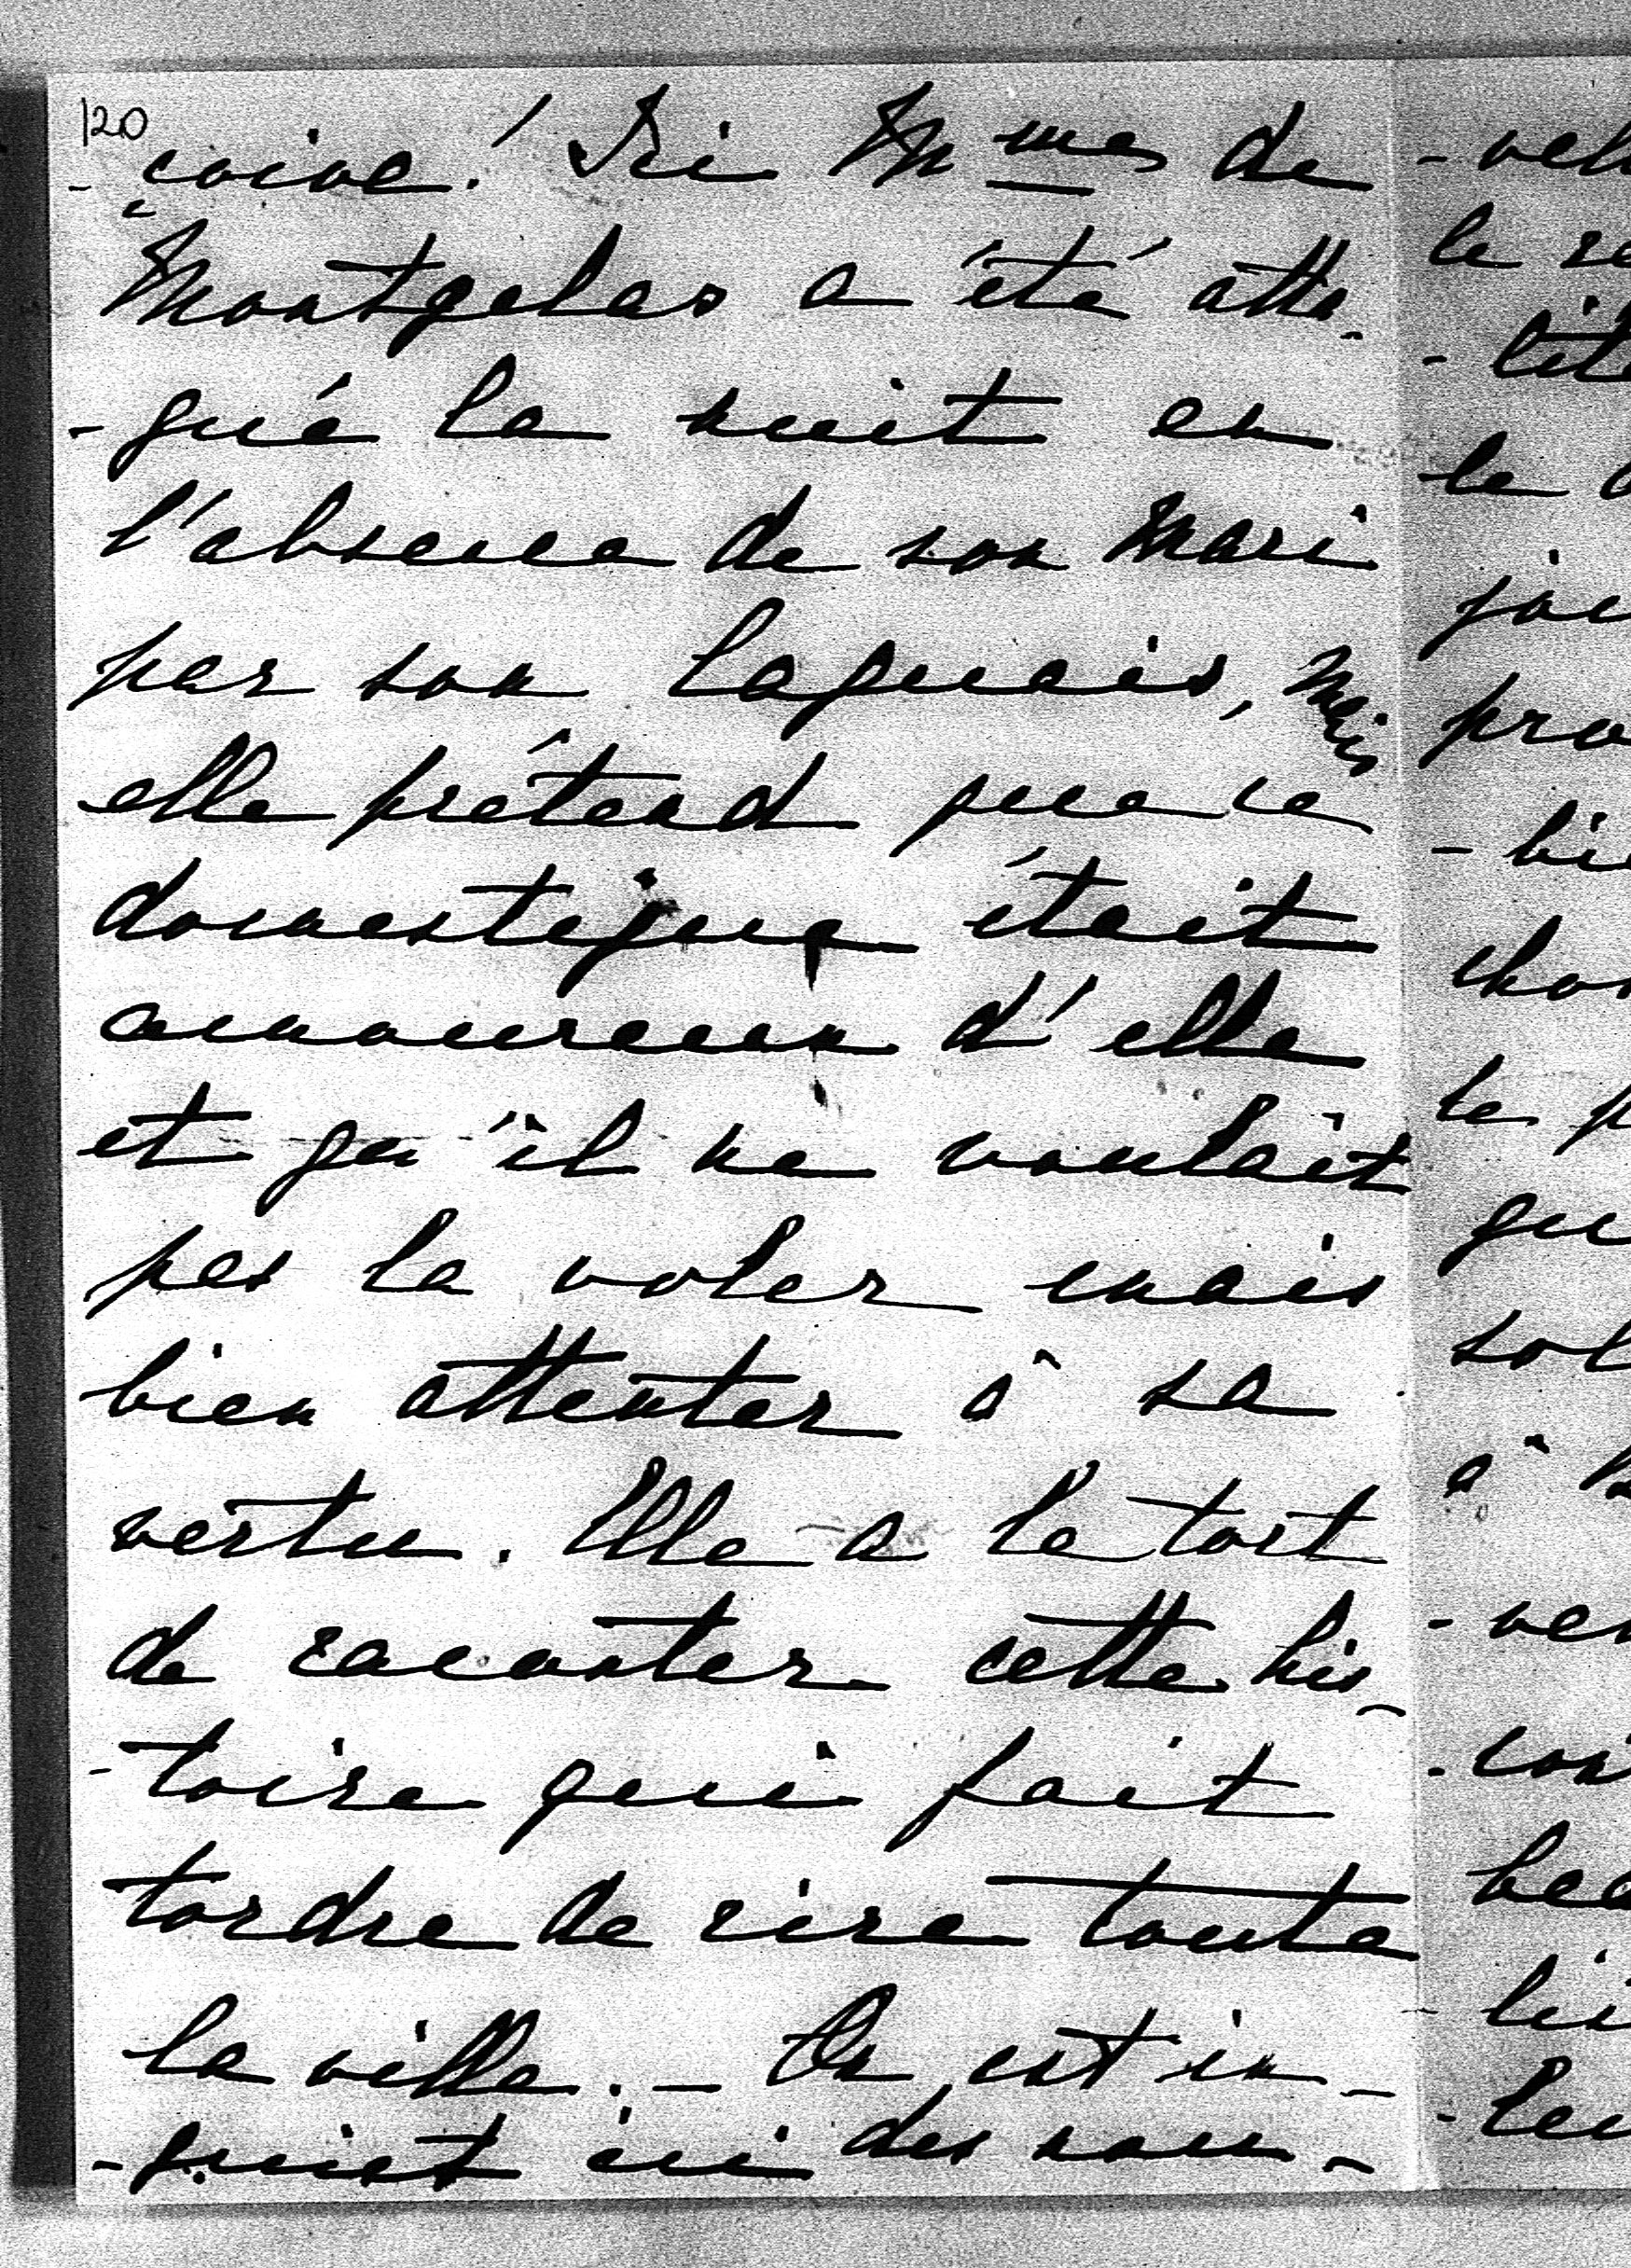 120
- çoive! Ici Mmes de
Montgelas a été atta-
- qué la nuit en
l'absence de son mari
par son laquais, mais
elle prétend que ce
domestique était
amoureux d'elle
et qu'il ne voulait
pas la voler mais
bien attenter à sa
vertu. Elle a le tort
de raconter cette his-
- toire qui fait
tordre de rire toute
la ville. - On est in-
- quiet ici des nou-